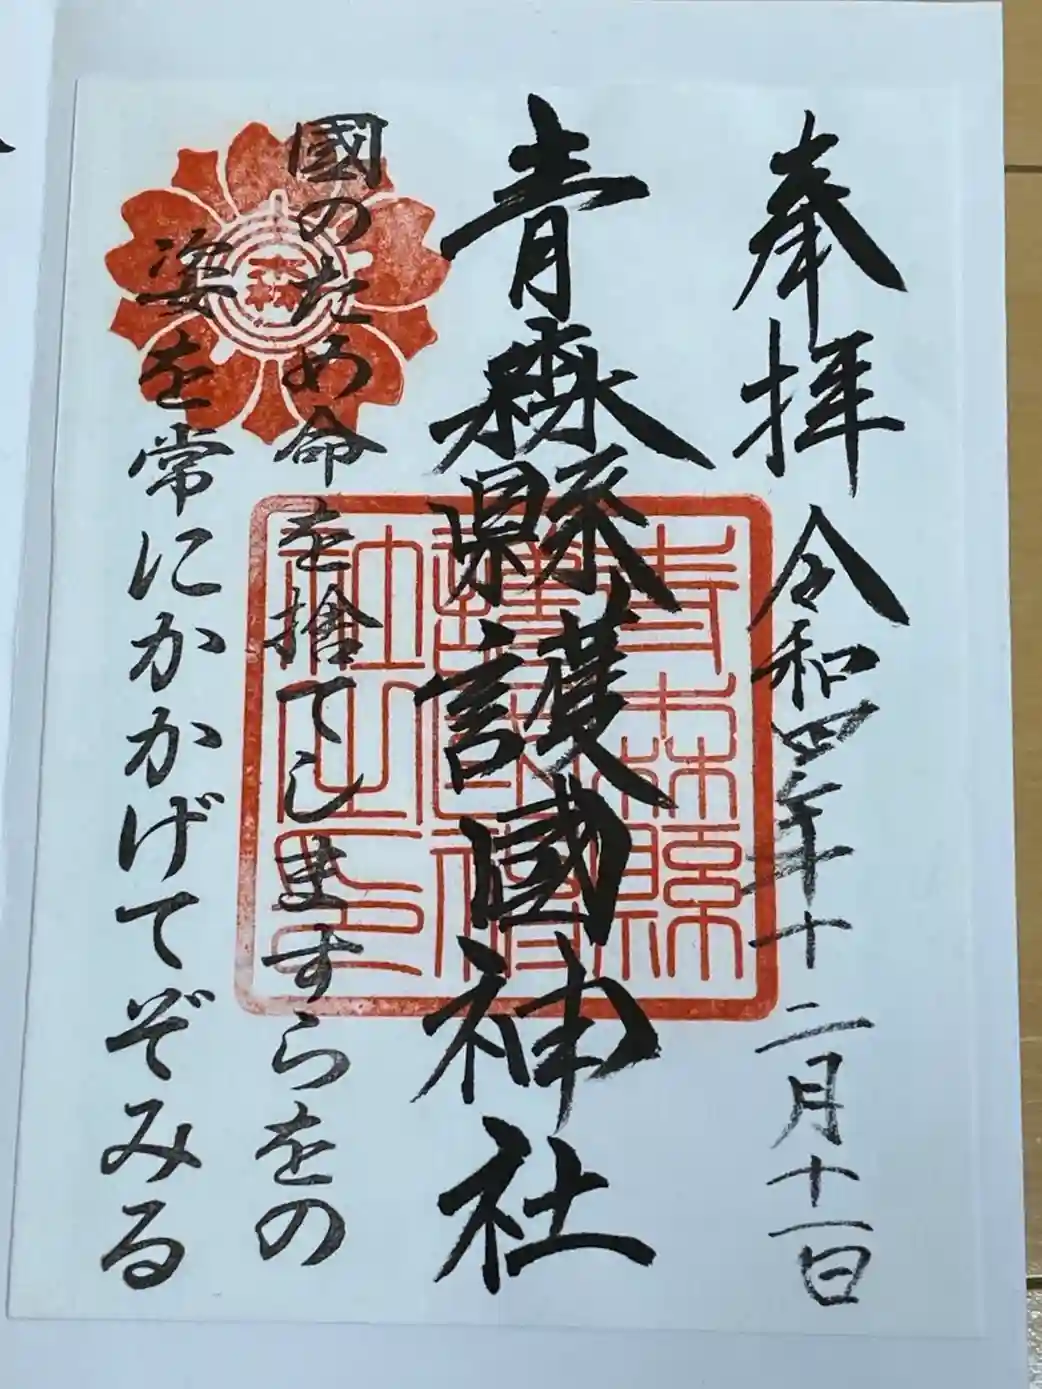 奉拝 令和四年十二月十一日
青森縣護國神社
國のため命を捨てしますらをの
姿を常にかかげてぞみる
青森
青森縣
護國神
社之印